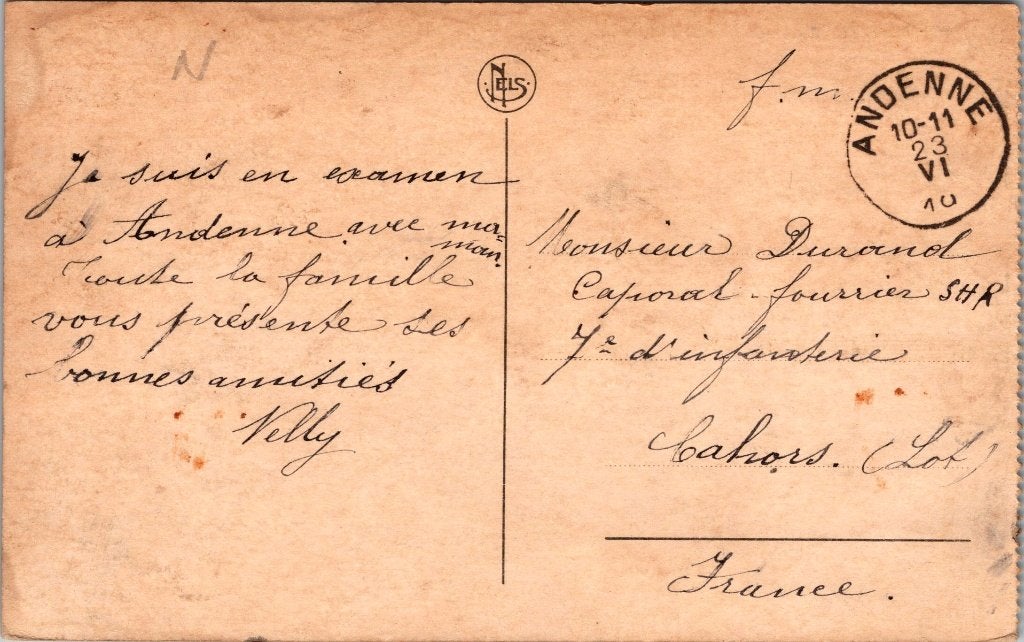 N
NELS
f.m.
ANDENNE
10-11
23
VI
Je suis en examen
à Andenne avec ma-
man.
Toute la famille
vous présente ses
bonnes amitiés
Nelly
Monsieur Durand
Caporal-fourrier SHR
7e d'infanterie
Cahors. (Lot)
France.